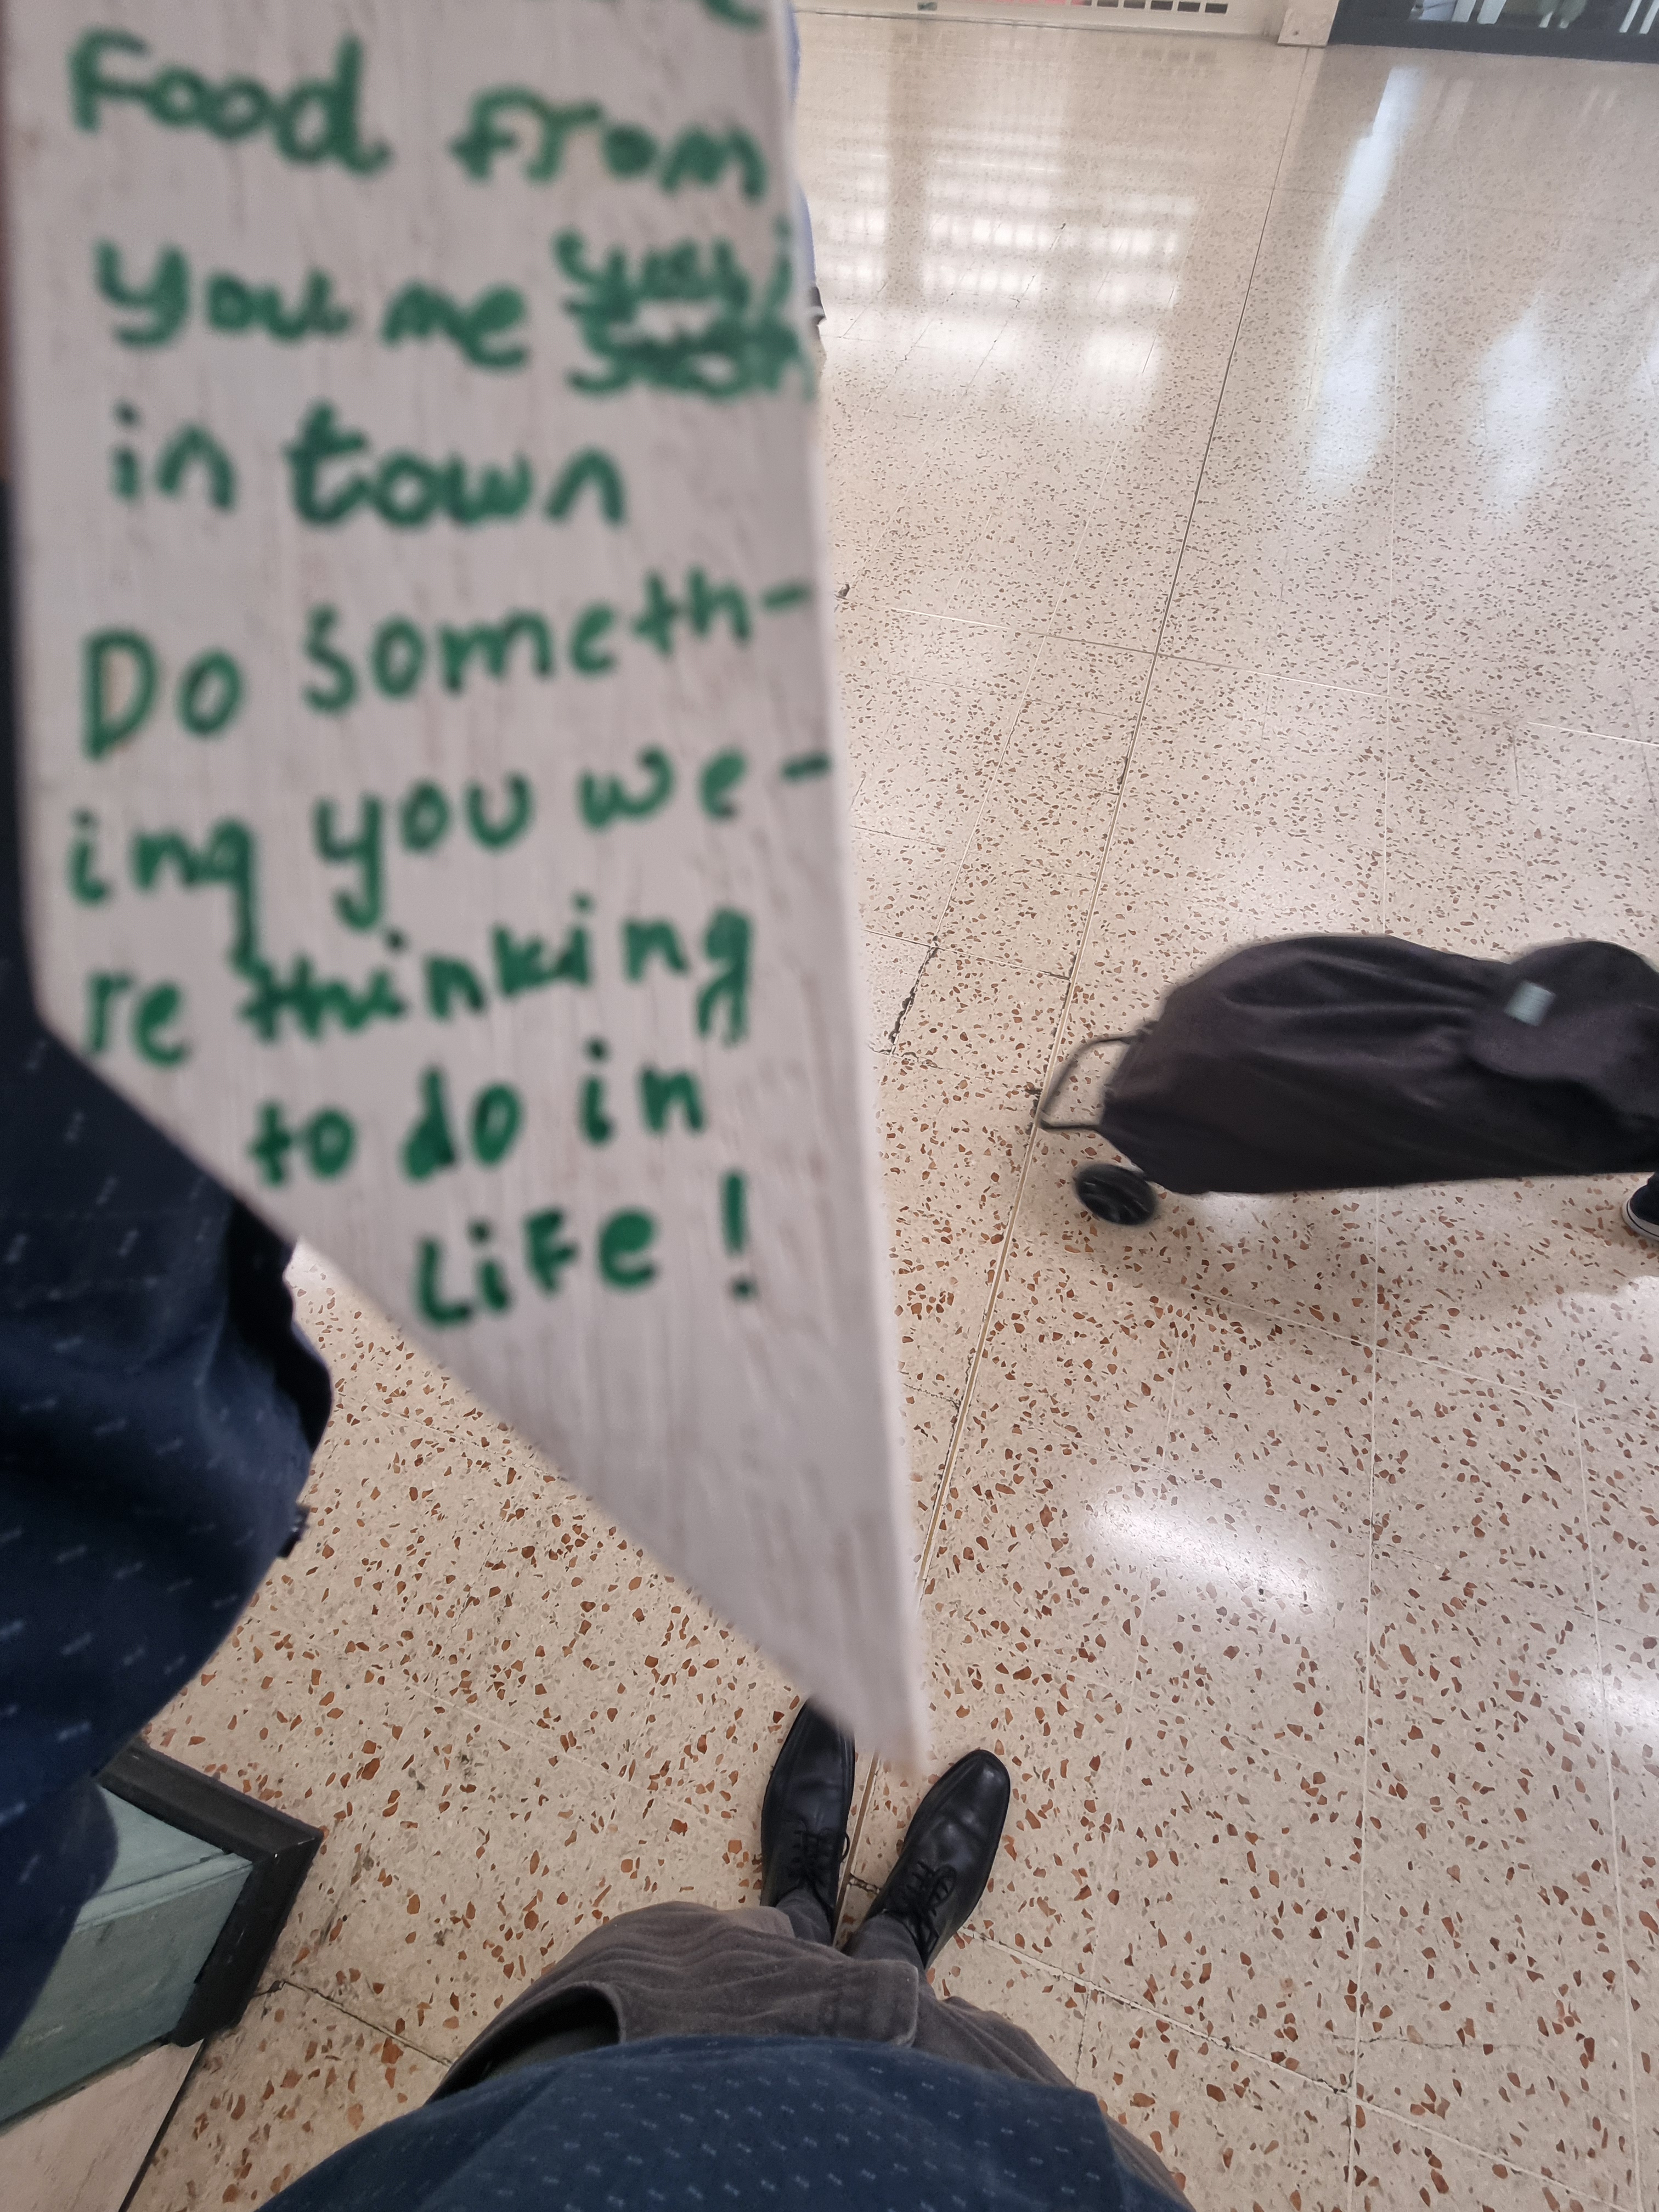 Food from
you me
in town
Do someth-
ing you we-
re thinking
to do in
LiFe!